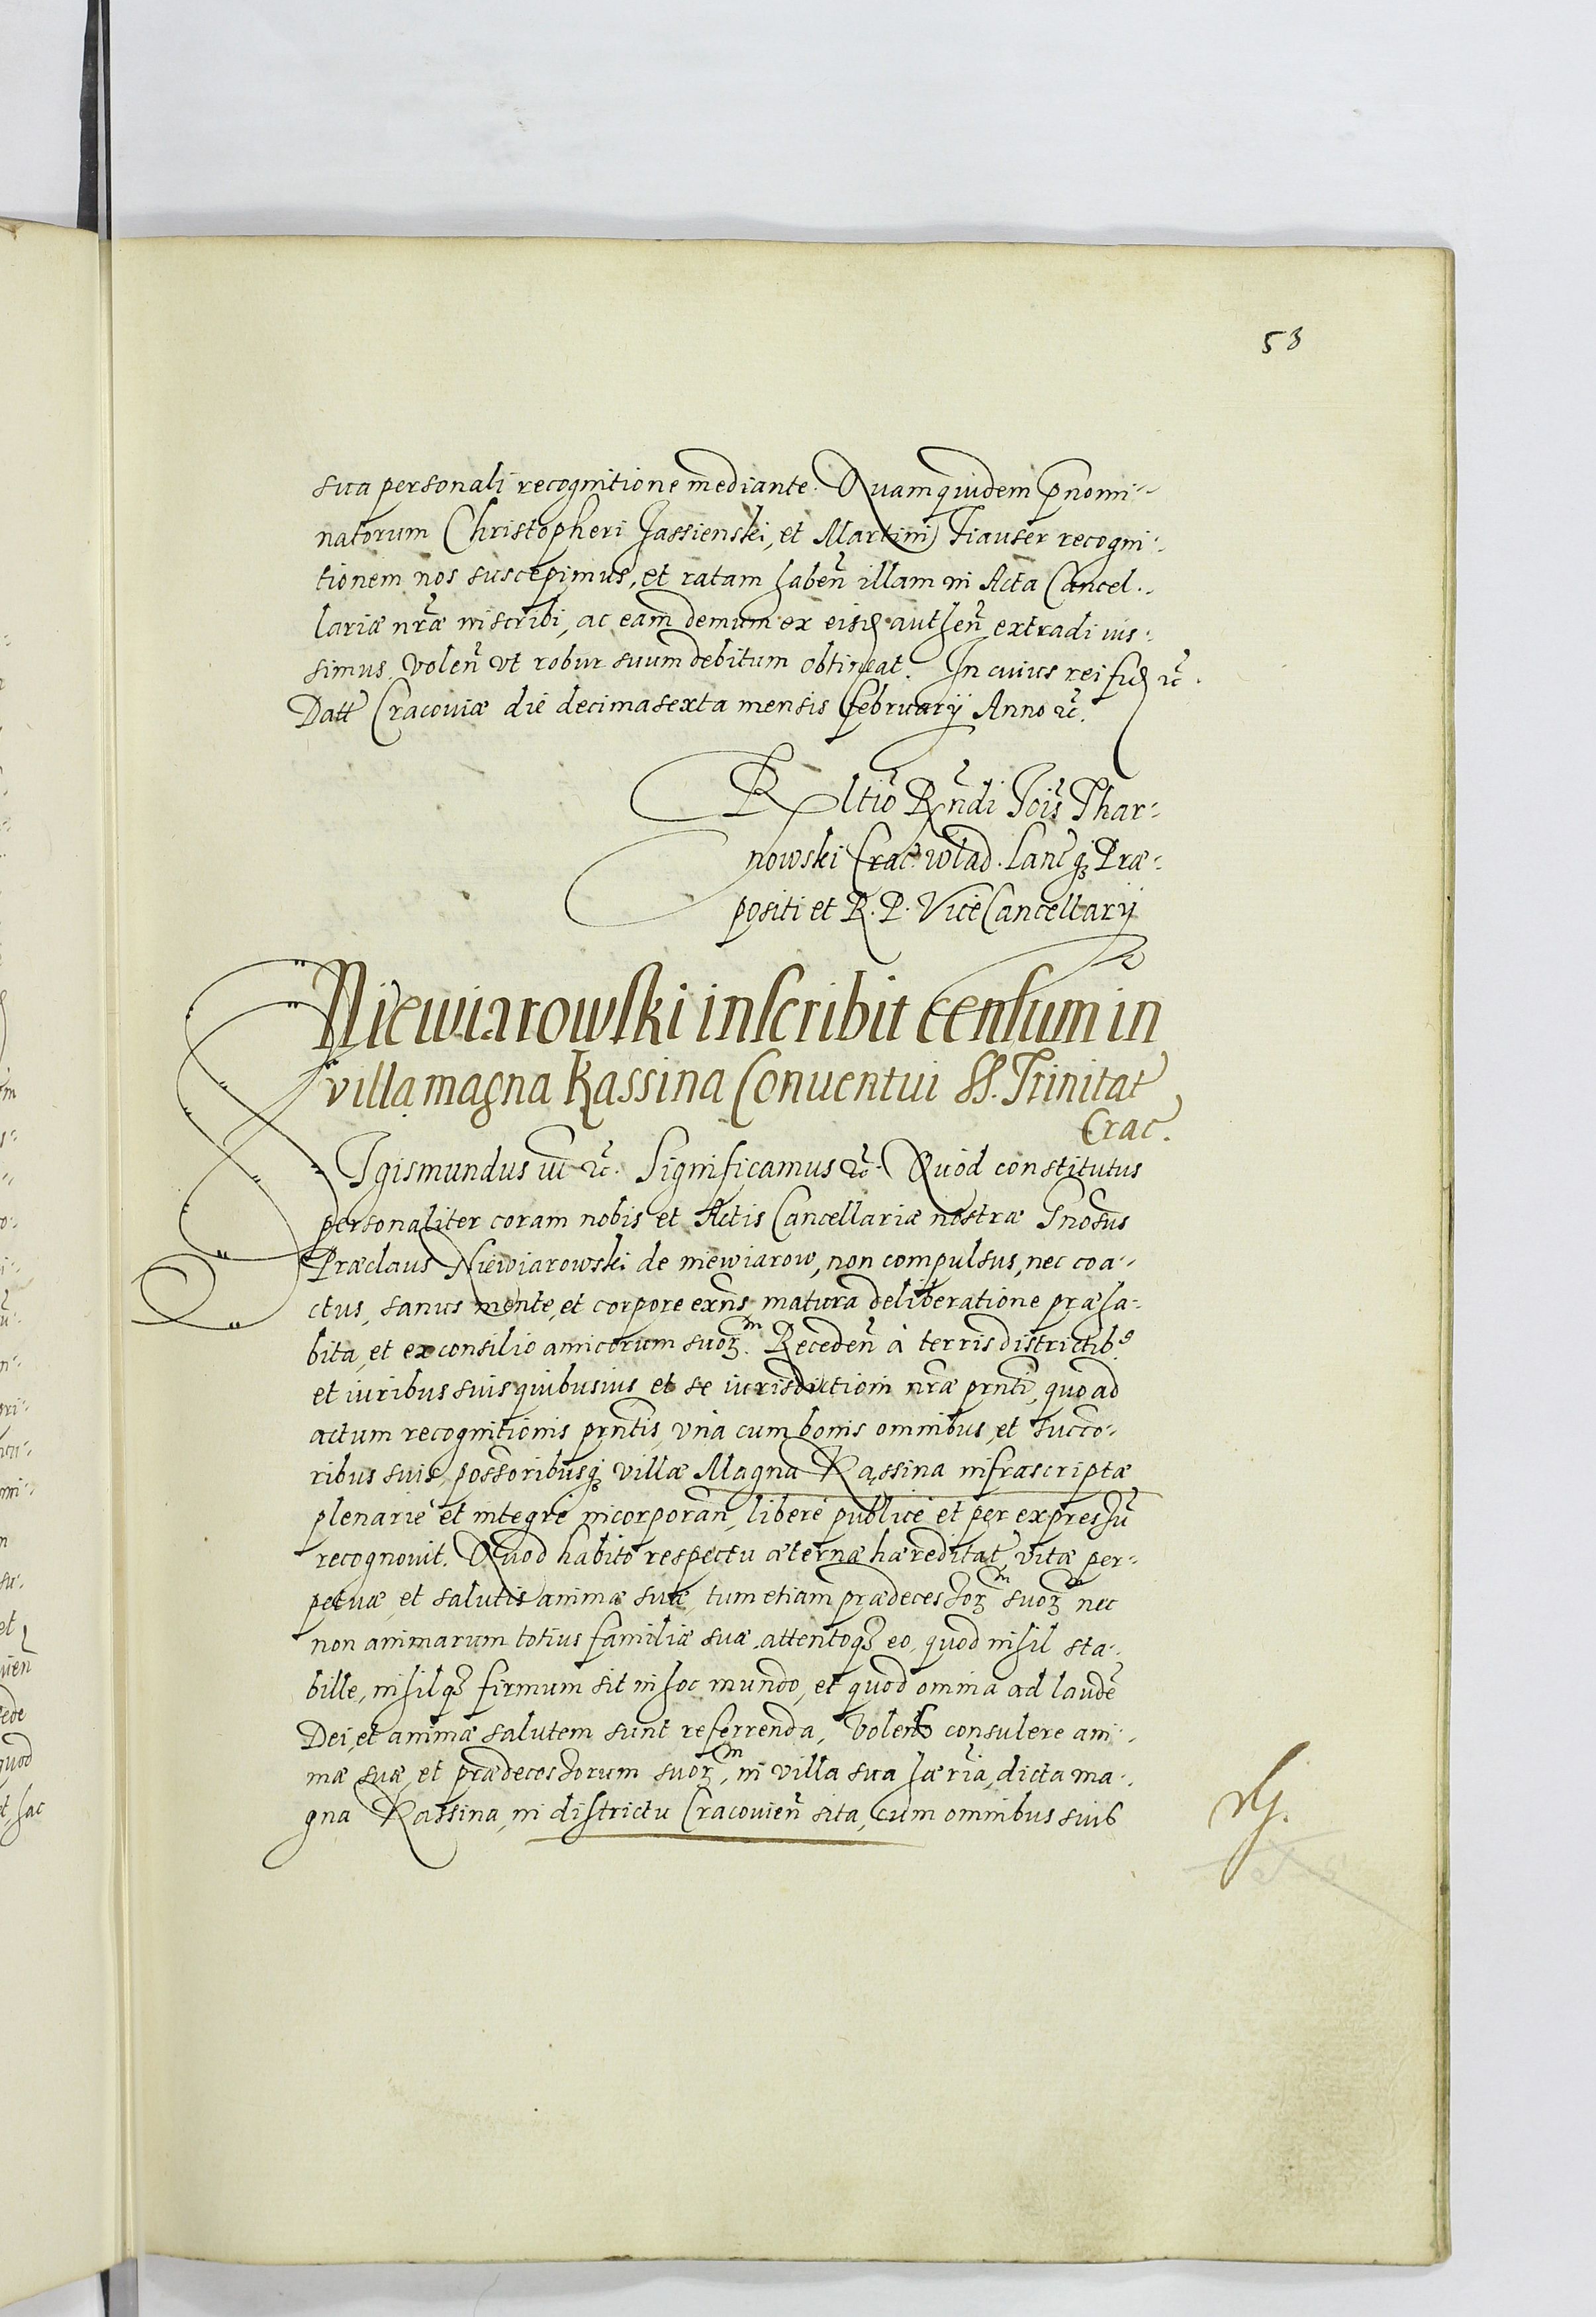 53
sua personali recognitione mediante. Quam quidem pnomi-
natorum Christopheri Jassienski, et Martini Tiauser recogni-
tionem nos suscepimus, et ratam haben illam in Acta Cancel-
lariæ nræ inscribi, ac eam demum ex eisd authen extradi ius-
simus volen vt robur suum debitum obtineat. In cuius rei fid &c.
Datt Cracouiæ die decimasexta mensis february Anno &c.
Rltio Rndi Jois Thar-
nowski Crac. wlad. Lanc q; Præ-
positi et R. P. ViceCancellarij
Niewiarowski inscribit censum in
villa magna Kassina Conuentui SS. Trinitat
Crac.
SIgismundus iii &c. Significamus &c. Quod constitutus
personaliter coram nobis et Actis Cancellariæ nostræ Gnosus
Præclaus Niewiarowski de niewiarow, non compulsus, nec coa-
ctus, sanus mente, et corpore exns, matura deliberatione præha-
bita, et ex consilio amicorum suorm. Receden à terris districtib9
et iuribus suis quibusuis et se iurisdictioni nræ prnti, quo ad
actum recognitionis prntis, vna cum bonis omnibus, et succo-
ribus suis, possoribusq; villæ Magna Kassina infrascriptæ
plenarie et integre incorporan, libere publice et per expressu
recognouit. Quod habito respectu æternæ hæreditat, vitæ per-
petuæ, et salutis animæ suæ, tum etiam prædecessorm suorm nec
non animarum totius familiæ suæ, attentoq; eo, quod nihil sta-
bille, nihilq; firmum sit in hoc mundo, et quod omnia ad laude
Dei, et animæ salutem sunt referrenda, Volens consulere ani-
mæ suæ, et prædecessorum suorm, in villa sua hæria, dicta ma-
gna Kassina, in districtu Cracouien sita, cum omnibus suis